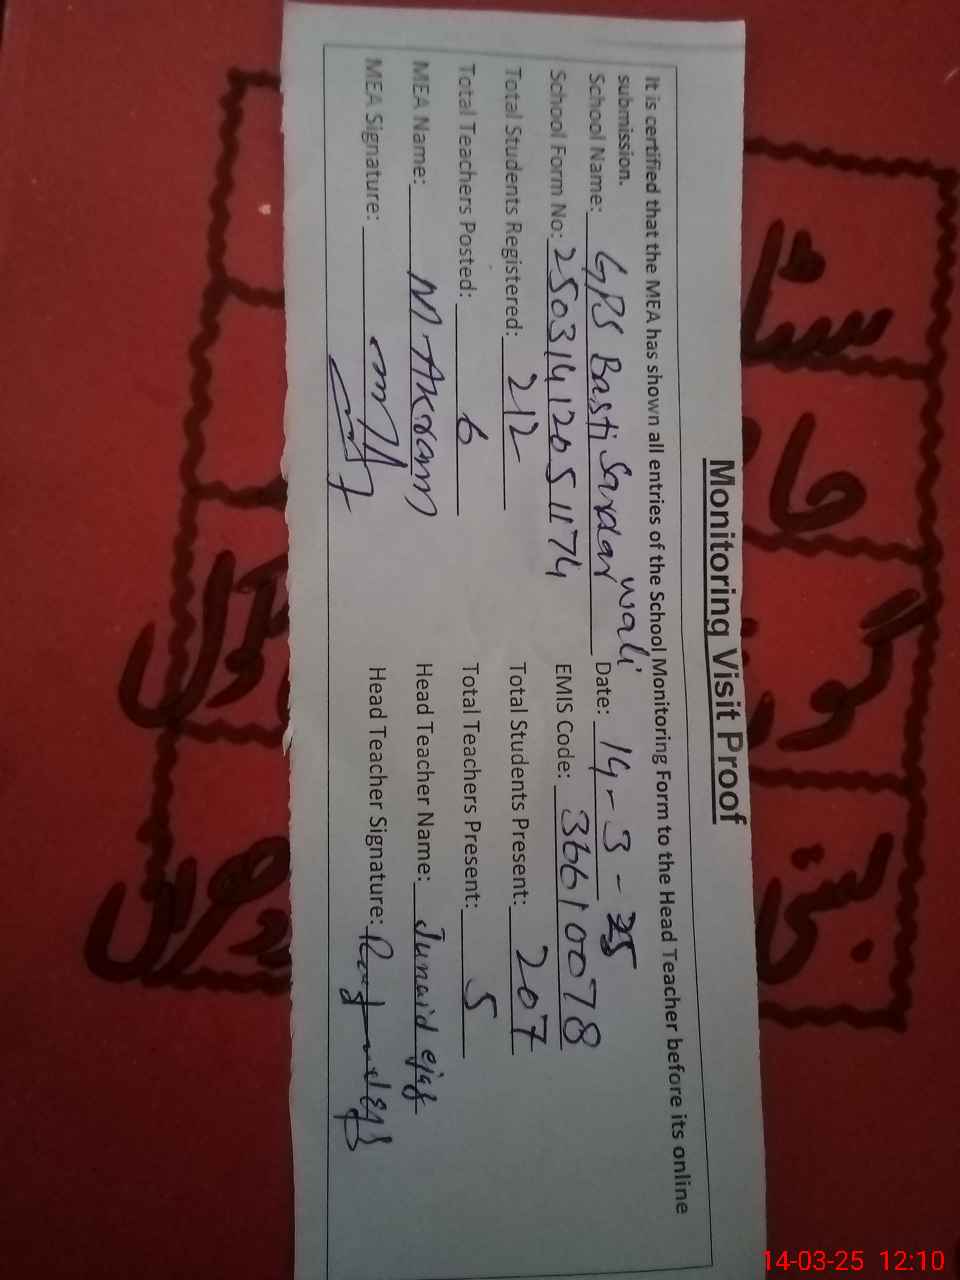 Monitoring Visit Proof
It is certified that the MEA has shown all entries of the School Monitoring Form to the Head Teacher before its online
submission.
School Name: GPS Basti Sardar wali Date: 14-3-25
School Form No: 25031412051174 EMIS Code: 36610078
Total Students Registered: 212 Total Students Present: 207
Total Teachers Posted: 6 Total Teachers Present: 5
MEA Name: M Akram Head Teacher Name: Junaid ejaz
MEA Signature: Head Teacher Signature:
14-03-25 12:10